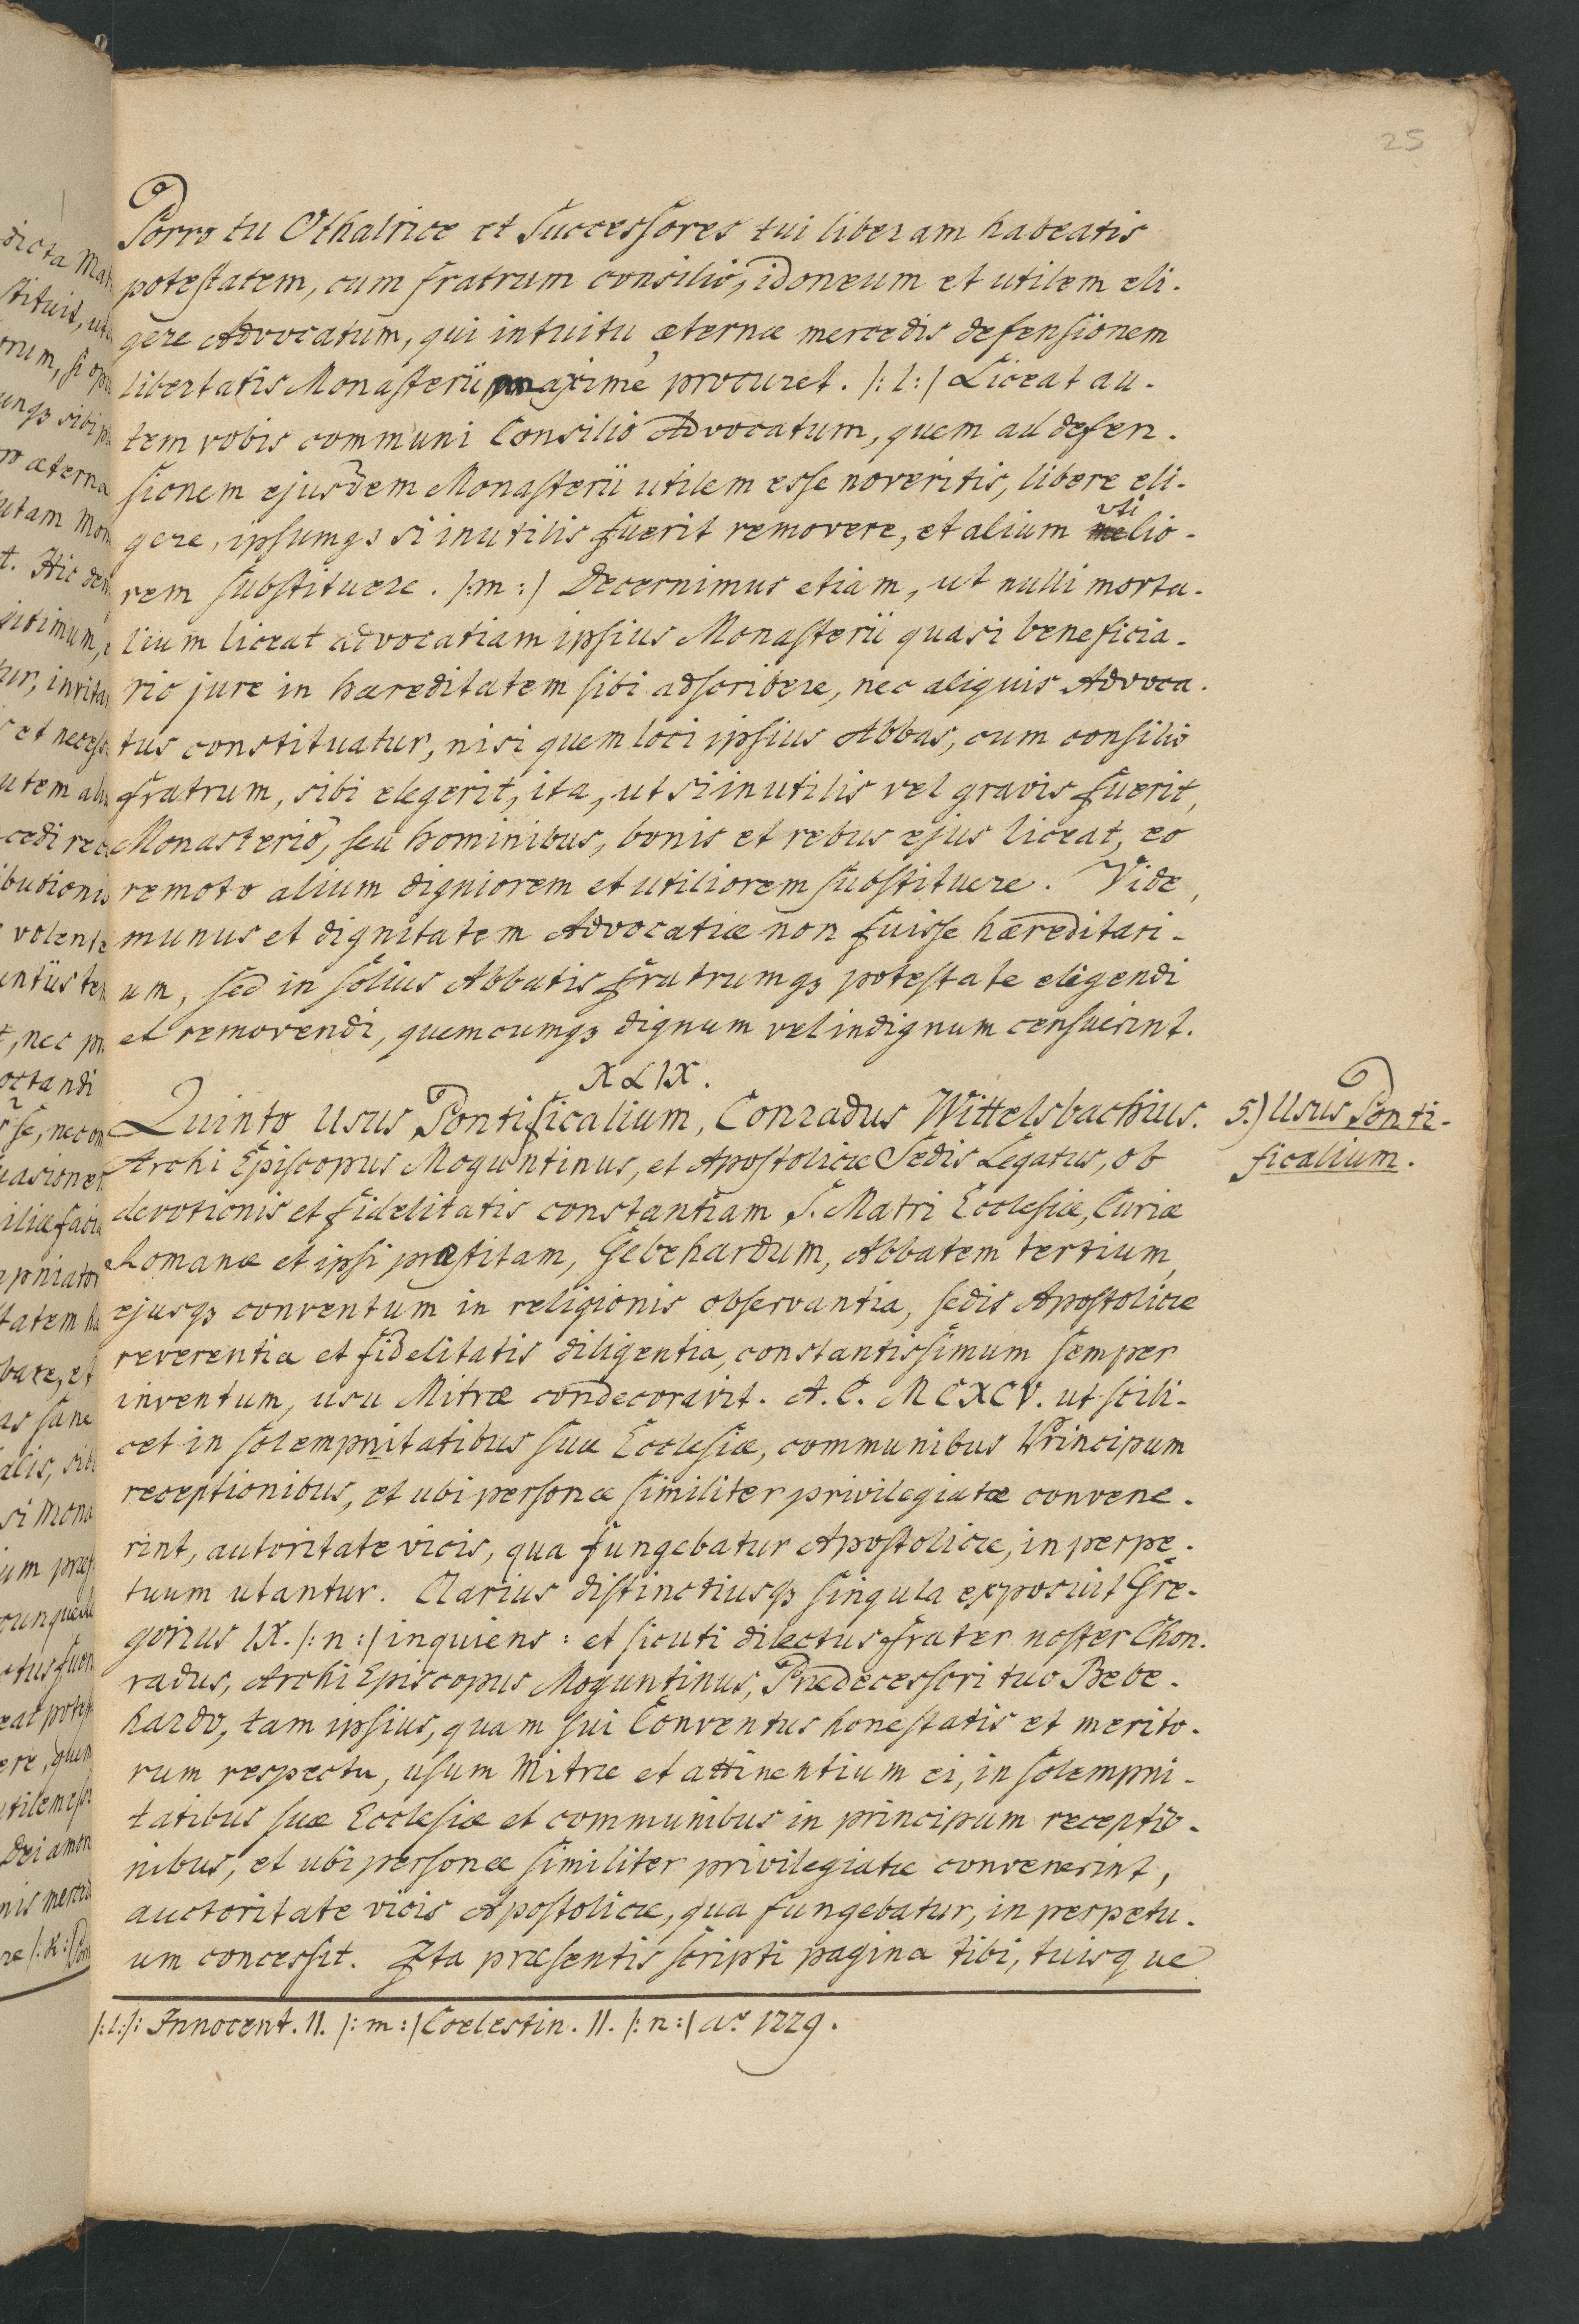 25
Porro tu Othalrice et Successores tui liberam habeatis
potestatem, cum fratrum consilio, idoneum et utilem eli-
gere Advocatum, qui intuitu æternæ mercedis defensionem
libertatis Monasterii maxime procuret. /: l :/ Liceat au-
tem vobis communi Consilio Advocatum, quem ad defen-
sionem ejusdem Monasterii utilem esse noveritis, libere eli-
gere, ipsumqз si inutilis fuerit removere, et alium utilio-
rem substituere. /: m :/ Decernimus etiam, ut nulli morta-
lium liceat advocatiam ipsius Monasterii quasi beneficia-
rio jure in hæreditatem sibi adscribere, nec aliquis Advoca-
tus constituatur, nisi quem loci ipsius Abbas, cum consilio
fratrum, sibi elegerit, ita, ut si inutilis vel gravis fuerit,
Monasterio, seu hominibus, bonis et rebus ejus liceat, eo
remoto alium digniorem et utiliorem substituere. Vide,
munus et dignitatem Advocatiæ non fuisse hæreditari-
um, sed in solius Abbatis fratrumqз potestate eligendi
et removendi, quemcumqз dignum vel indignum censuerint.
XLIX.
Quinto Usus Pontificalium, Conradus Wittelsbachius.
5.) Usus Ponti-
ficalium.
Archi Episcopus Moguntinus, et Apostolicæ Sedis Legatus, ob
devotionis et fidelitatis constantiam S. Matri Ecclesiæ, Curiæ
Romanæ et ipsi præstitam, Gebehardum, Abbatem tertium,
ejusqз conventum in religionis observantia, sedis Apostolicæ
reverentia et fidelitatis diligentia, constantissimum semper
inventum, usu Mitræ condecoravit. A. C. MCXCV. ut scili-
cet in solempnitatibus suæ Ecclesiæ, communibus Principum
receptionibus, et ubi personæ similiter privilegiatæ convene-
rint, autoritate vicis, qua fungebatur Apostolicæ, in perpe-
tuum utantur. Clarius distinctiusqз singula exposuit Gre-
gorius IX. /: n :/ inquiens: et sicuti dilectus frater noster Chon-
radus, Archi Episcopus Moguntinus, Prædecessori tuo Bebe-
hardo, tam ipsius, quam sui Conventus honestatis et merito-
rum respectu, usum Mitræ et attinentium ei, in solempni-
tatibus suæ Ecclesiæ et communibus in principum receptio-
nibus, et ubi personæ similiter privilegiatæ convenerint,
auctoritate vicis Apostolicæ, qua fungebatur, in perpetu-
um concessit. Ita præsentis scripti pagina tibi, tuisque
/: l :/: Innocent. II. /: m :/ Coelestin. II. /: n :/ aº 1229.